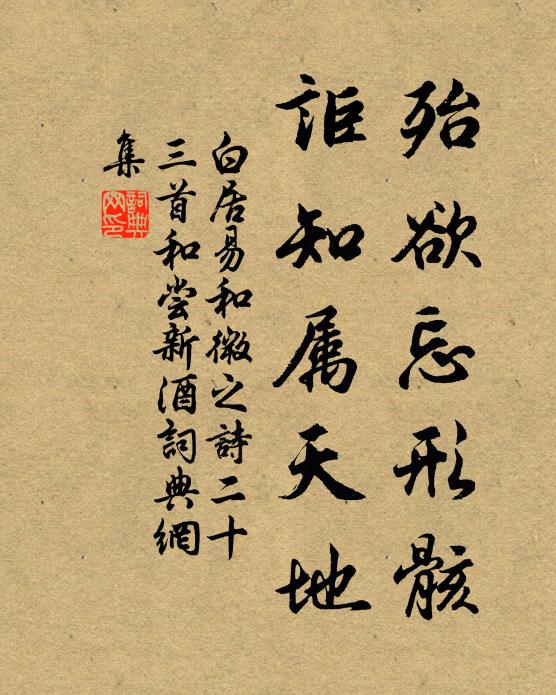 殆欲忘形骸
詎知属天地
白居易和微之詩二十
三首和尝新酒詞典網
集
詞典
网印